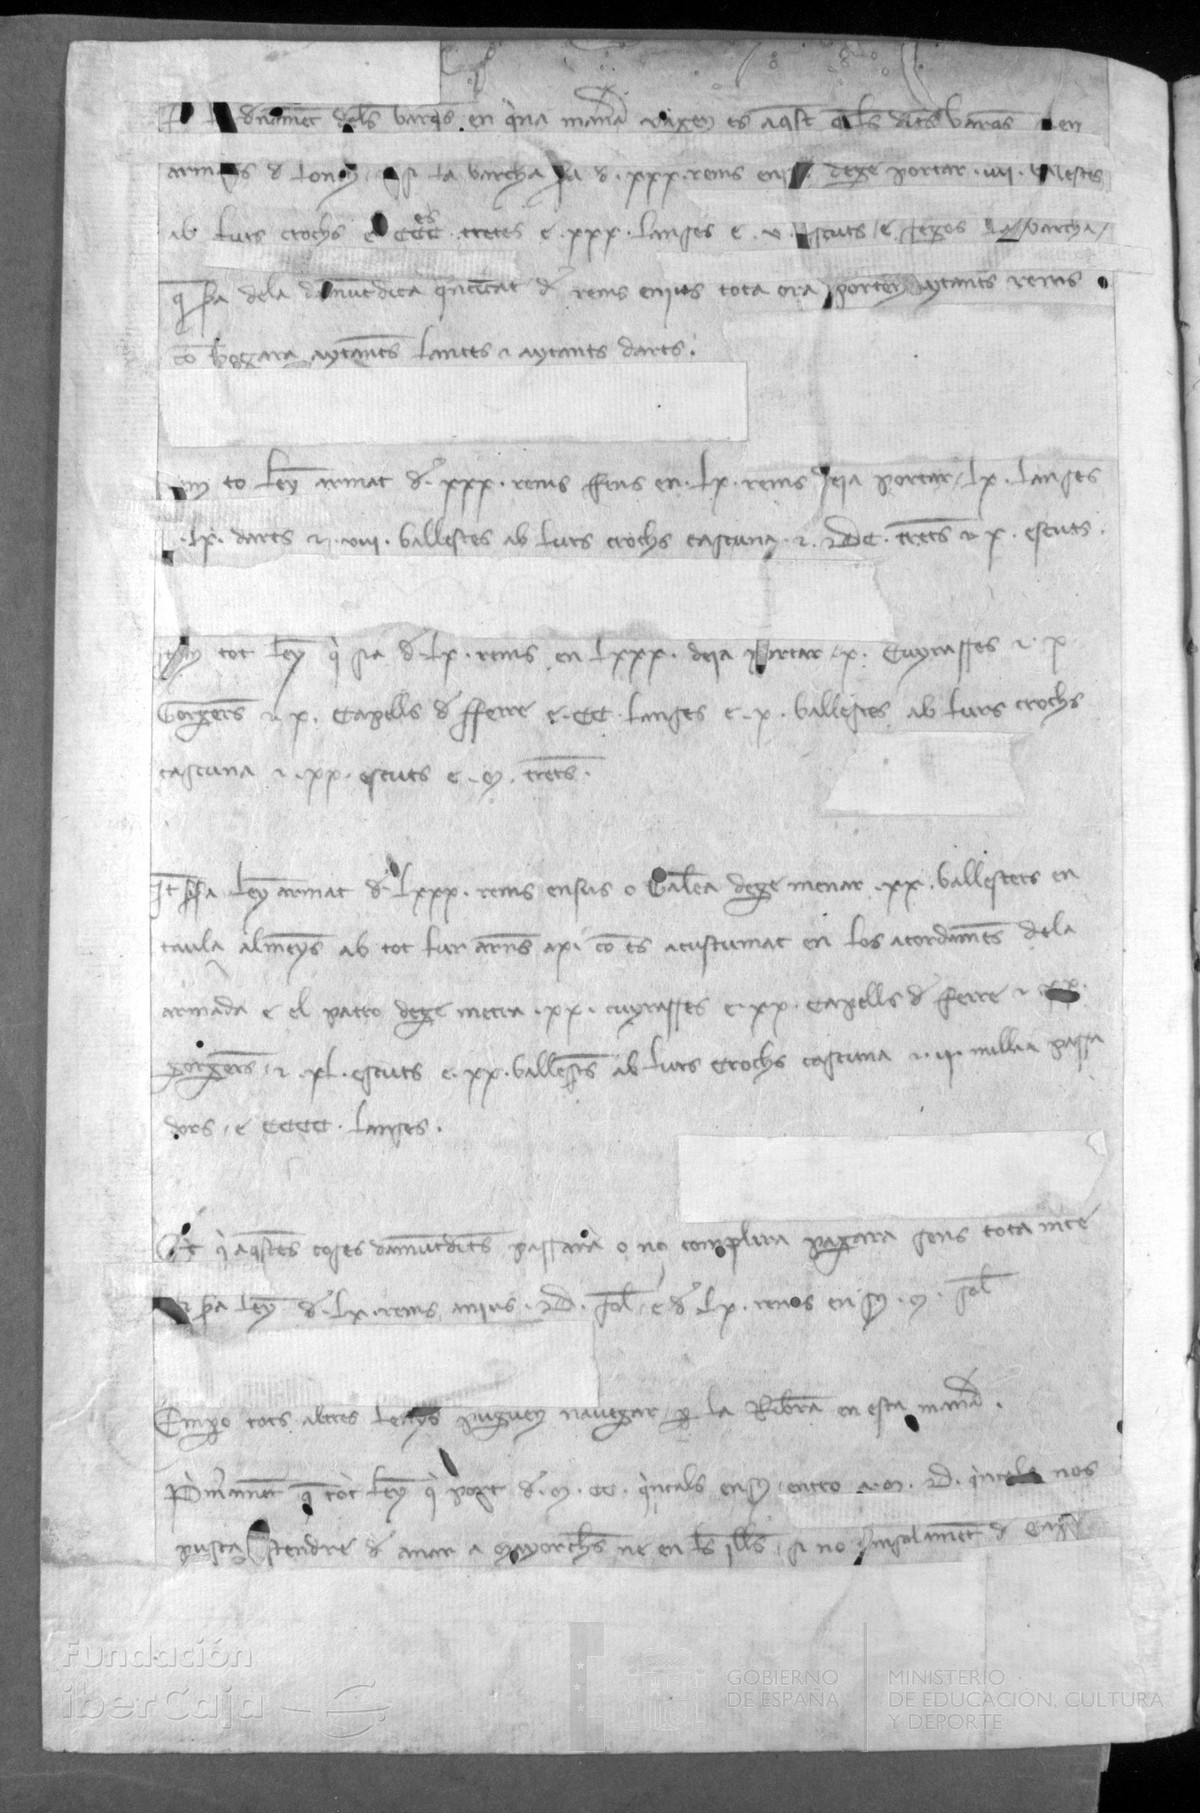 dels barques en q̃na mañ vagen es aq̃st q̃ les dites barques en
de lony si la barcha sia d .xxx. rems enjus dege portar .iiii. balestes
ab lurs crochs e CCC tretes e .xxx. lanses e .v. escuts e segos la barcha
q̃ sia dela damũtdita q̃ntitat de rems enjus tota ora porten aytants rems
cõ vogara aytants lances e aytants darts.
to leny armat de .xxx. rems fens en .lx. rems deja portar .lx. lanses
.lx. darts e .viii. ballestes ab lurs crochs cascuna e .DC. trets e x. escuts.
Itẽ tot leny q̃ sia de .lx. rems en lxxx. deja portar .x. Cuyrasses e x
Gorgeres e x. Capells de fferre e .CC. lanses e .x. ballestes ab lurs crochs
cascuna e .xx. escuts e .m. trets.
It si sia leny armat de lxxx. rems ensus o Galea dege menar .xx. ballesters en
taula almenys ab tot lur arnes axi cõ es acustumat en los acordamẽts dela
armada e el patro dege metra .xx. cuyrasses e .xx. Capells de ferre e xx.
gorgeres e .xl. escuts e .xx. ballestes ab lurs Crochs cascuna e .ii. millia passa
dors e CCCC. lanses.
q̃ aq̃stes coses damũtdites passara o no complira pagara sens tota mce
sia leny de .lx. rems anjus .D. sol e de lx. rems en sus .m. sol
Empo tots altres lenys puguen navegar p la Ribera en esta mañ.
q tot leny q̃ port de .m. CC. q̃ntals en sus entro a .m. D. q̃ntals nos
pusca stendre de anar a Mayorches ne en les illes si no solament de